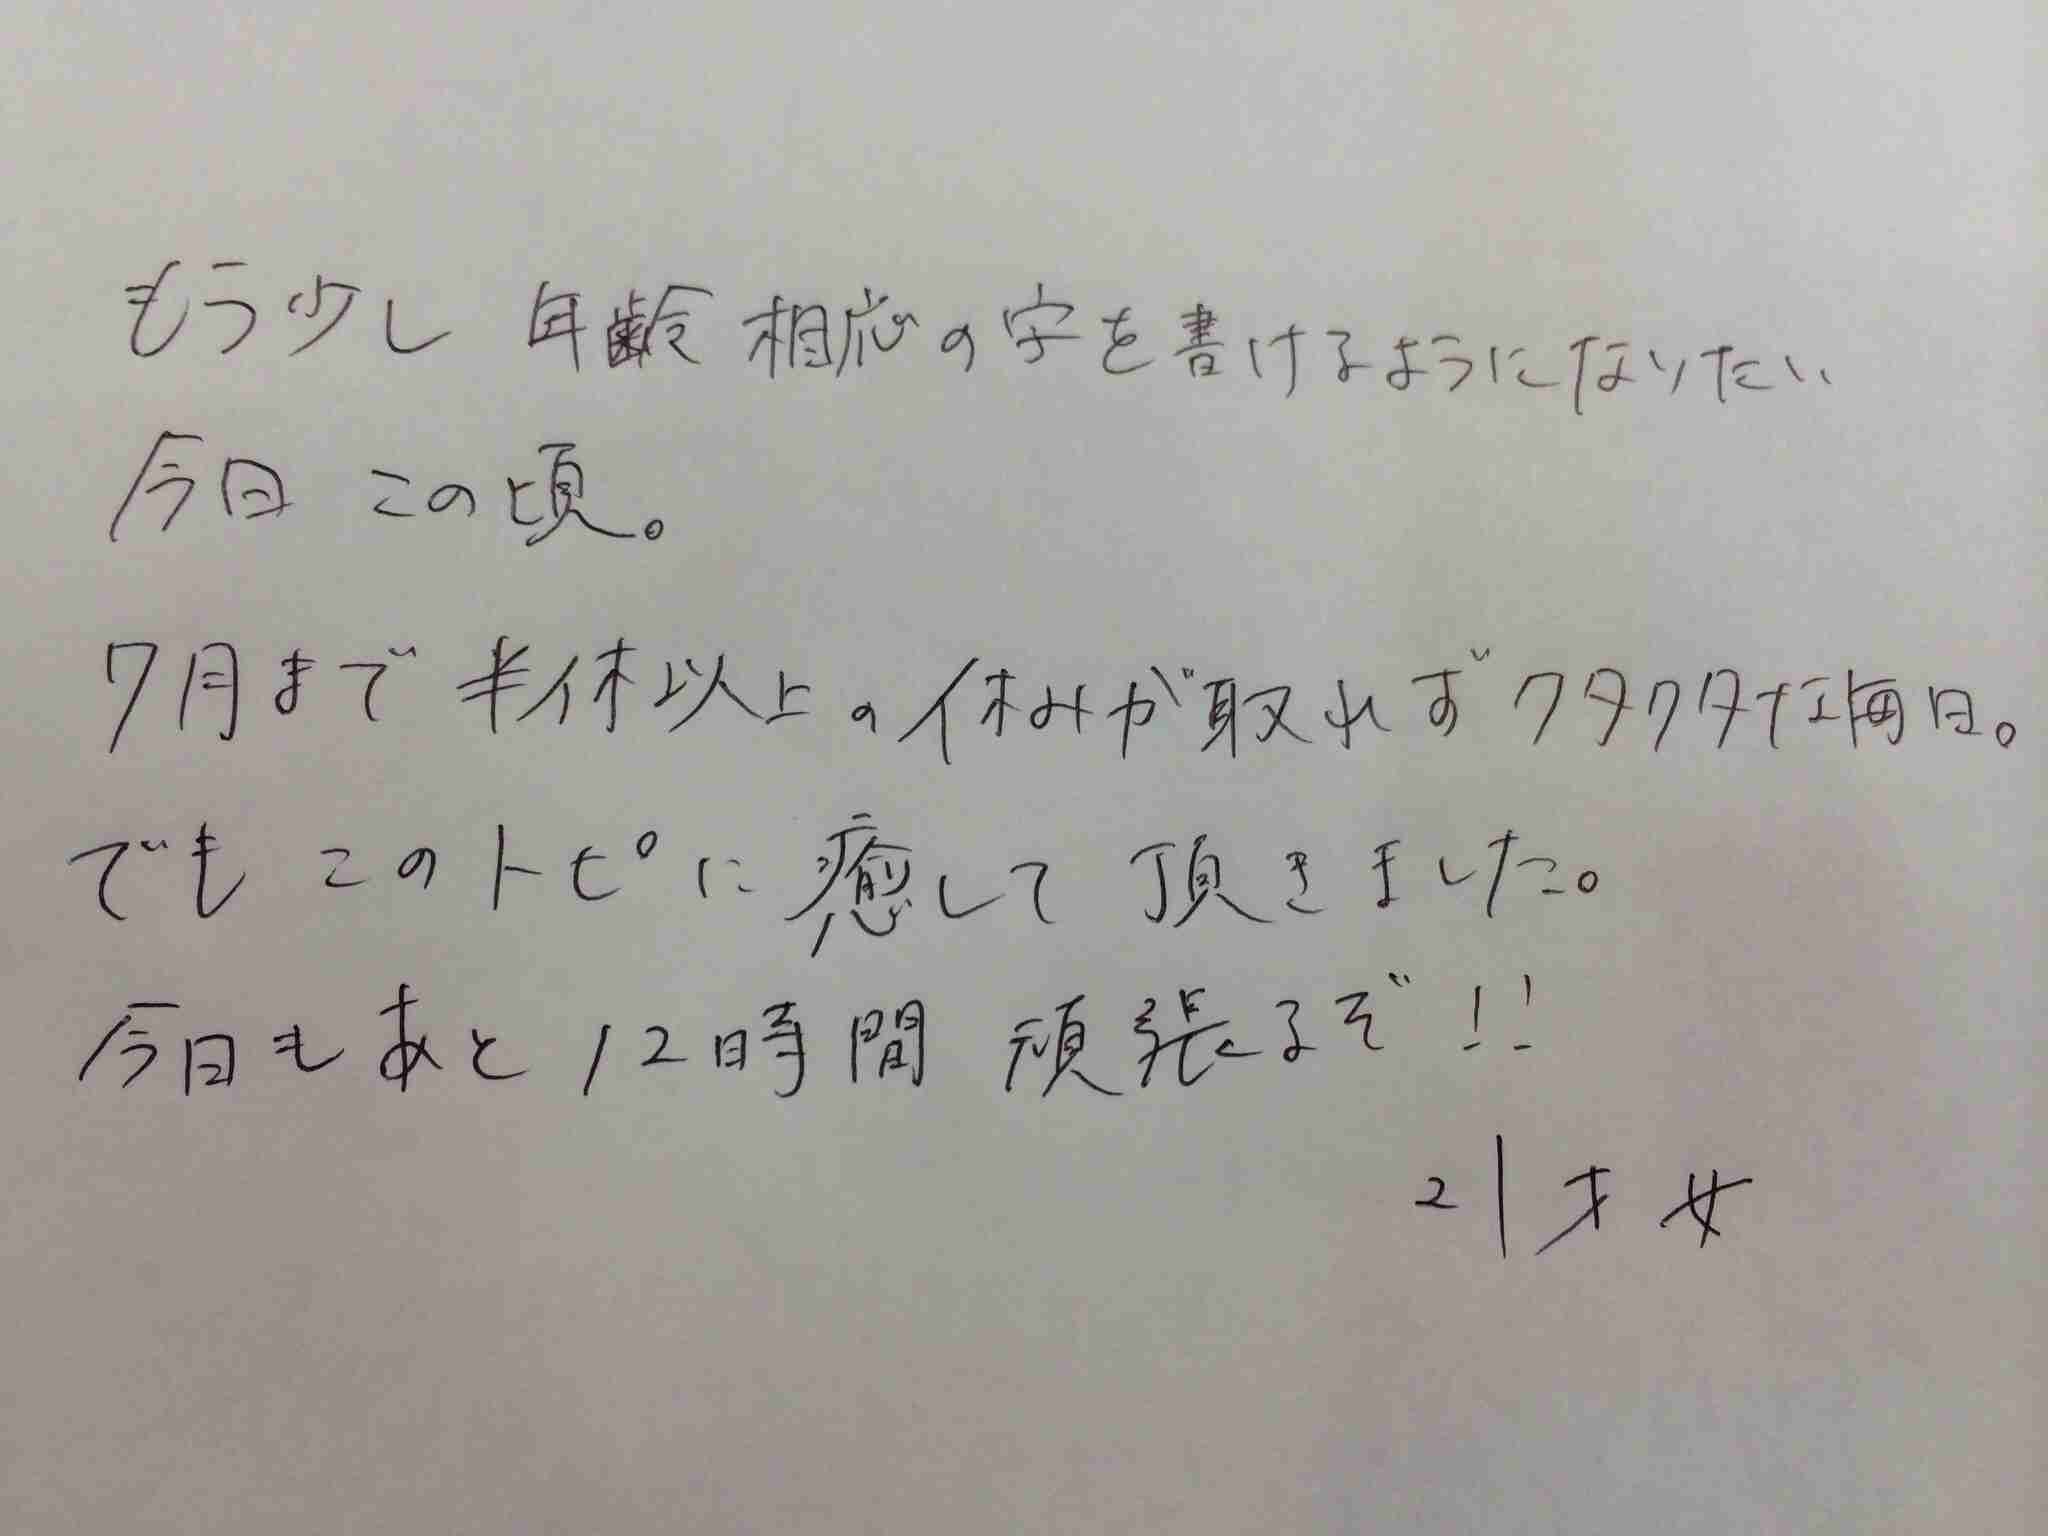 もう少し 年齢相応の字を書けるようになりたい
今日この頃。
7月まで半休以上の休みが取れずクタクタな毎日。
でもこのトピに癒して頂きました。
今日もあと12時間 頑張るぞ!!
21才 女